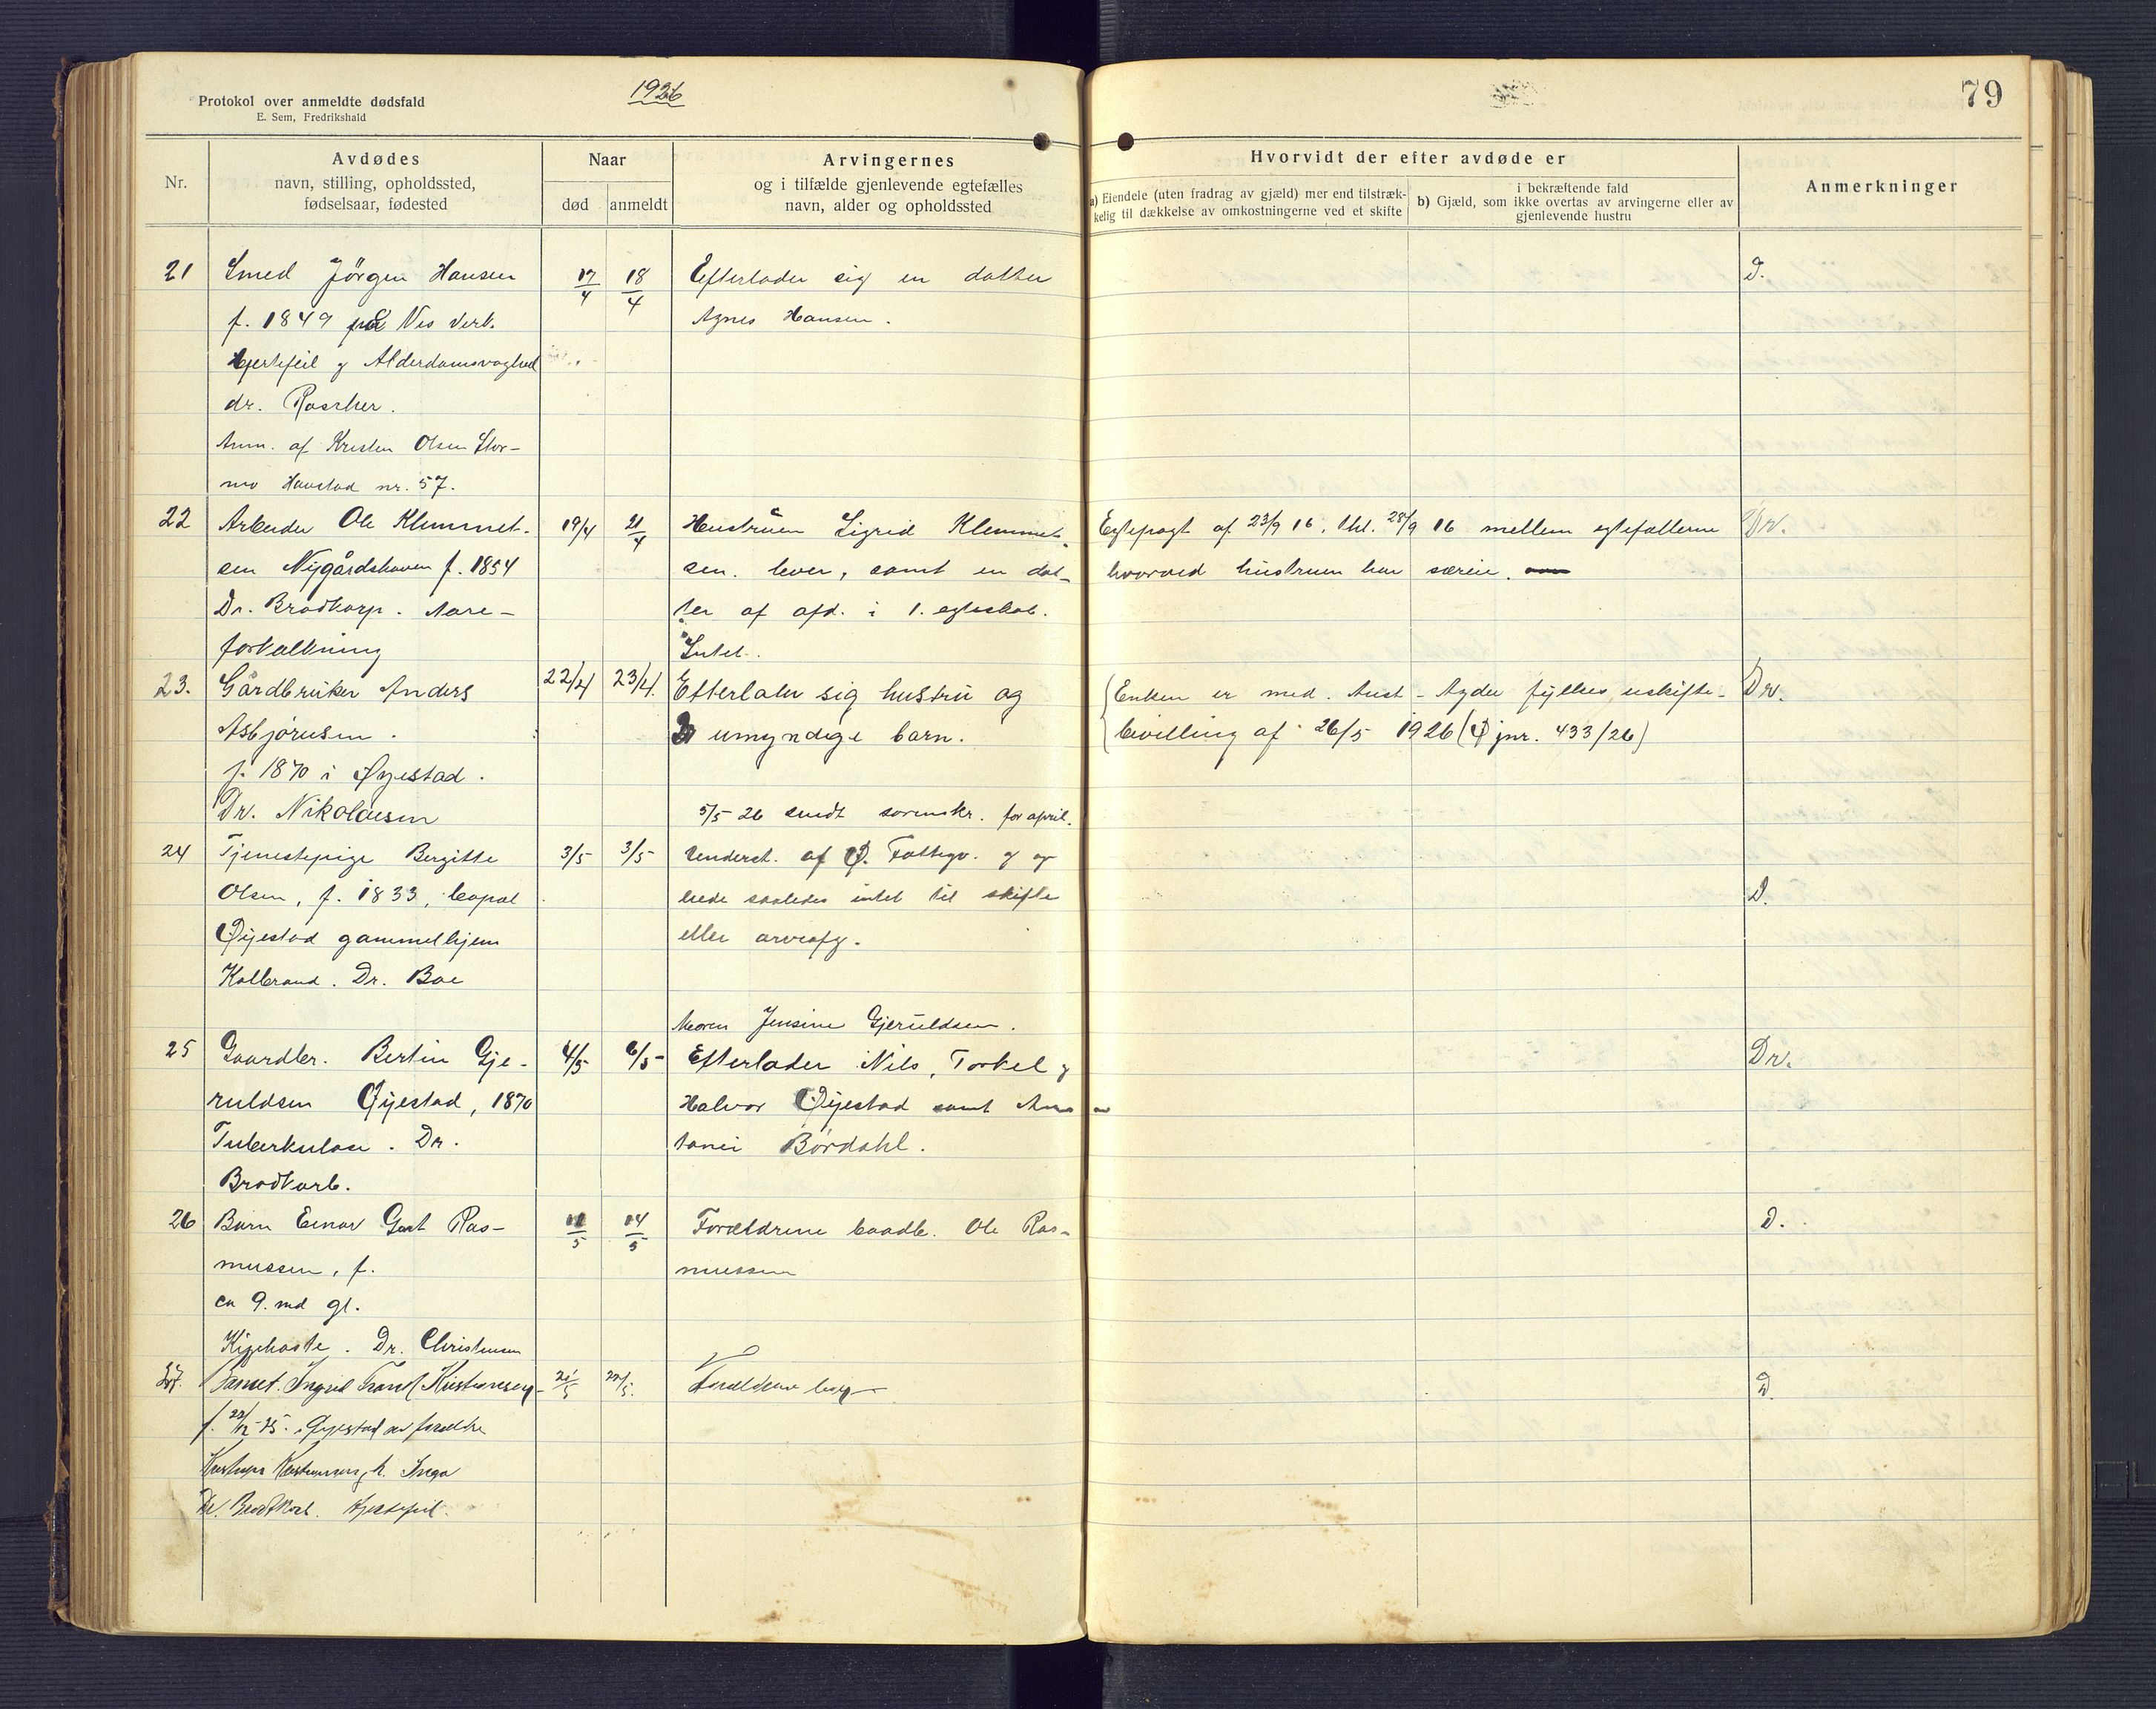 Protokol over anmeldte dødsfald
E. Sem, Fredrikshald
1926
79
Nr.
Avdødes
navn, stilling, opholdssted,
fødselsaar, fødested
Naar
død
anmeldt
Arvingernes
og i tilfælde gjenlevende egtefælles
navn, alder og opholdssted
Hvorvidt der efter avdøde er
a) Eiendele (uten fradrag av gjæld) mer end tilstræk-
kelig til dækkelse av omkostningerne ved et skifte
i bekræftende fald
b) Gjæld, som ikke overtas av arvingerne eller av
gjenlevende hustru
Anmerkninger
21
Smed Jörgen Hansen
f. 1849 på Nes Verk.
Hjertefeil og Alderdomsvaghed
dr. Roscher.
Anm. af Kristen Olsen Stor-
mo Havstad nr. 57.
17/4
18/4
Efterlader sig en datter
Agnes Hansen.
D.
22
Arbeider Ole Klemmet-
sen Nygårdshaven f. 1854
Dr. Brodtkorp. Aare-
forkalkning
19/4
21/4
Hustruen Sigrid Klemmet-
sen. lever, samt en dat-
ter af afd. i 1. egteskab.
Intet.
Egtepagt af 23/9 16, thl. 28/9 16 mellem egtefællerne
hvorved hustruen har særeie.
Dr.
23.
Gårdbruker Anders
Asbjørnsen.
f. 1870 i Øyestad.
Dr. Nikolaisen
22/4
23/4.
Efterlater sig hustru og
2 umyndige barn.
5/5 26 sendt sorenskr. for april.
Enken er med. Aust-Agder fylkes uskifte-
bevilling af 26/5 1926 (Ø jnr. 433/26)
Dr.
24
Tjenestepige Bergitte
Olsen, f. 1833, bopæl
Øyestad gammelhjem
Kalbrand. Dr. Boe
3/5
3/5
Underst. af Ø. Fattigv. og ep
lede saaledes intet til skifte
eller arveafg.
D.
25
Gaardbr. Bertin Gje-
ruldsen Øyestad, 1870
Tuberkulose. Dr.
Brodtkorb.
4/5
6/5
Moren Jensine Gjeruldsen.
Efterlader Nils, Torkel og
Halvor Øyestad samt Ann
tanei Børdahl.
Dr.
26
Barn Einar Gert Ras-
mussen, f.
ca 9. md gl.
Kighoste. Dr. Christensen
11/5
14/5
Forældrene baadb. Ole Ras-
mussen
D.
27.
Ingrid Kristiansen
f. 22/12-25. i Øyestad av forældre
h. Inga
Dr. Brodtkorb. Hjertefeil.
21/5
22/5.
Forældrene
D.